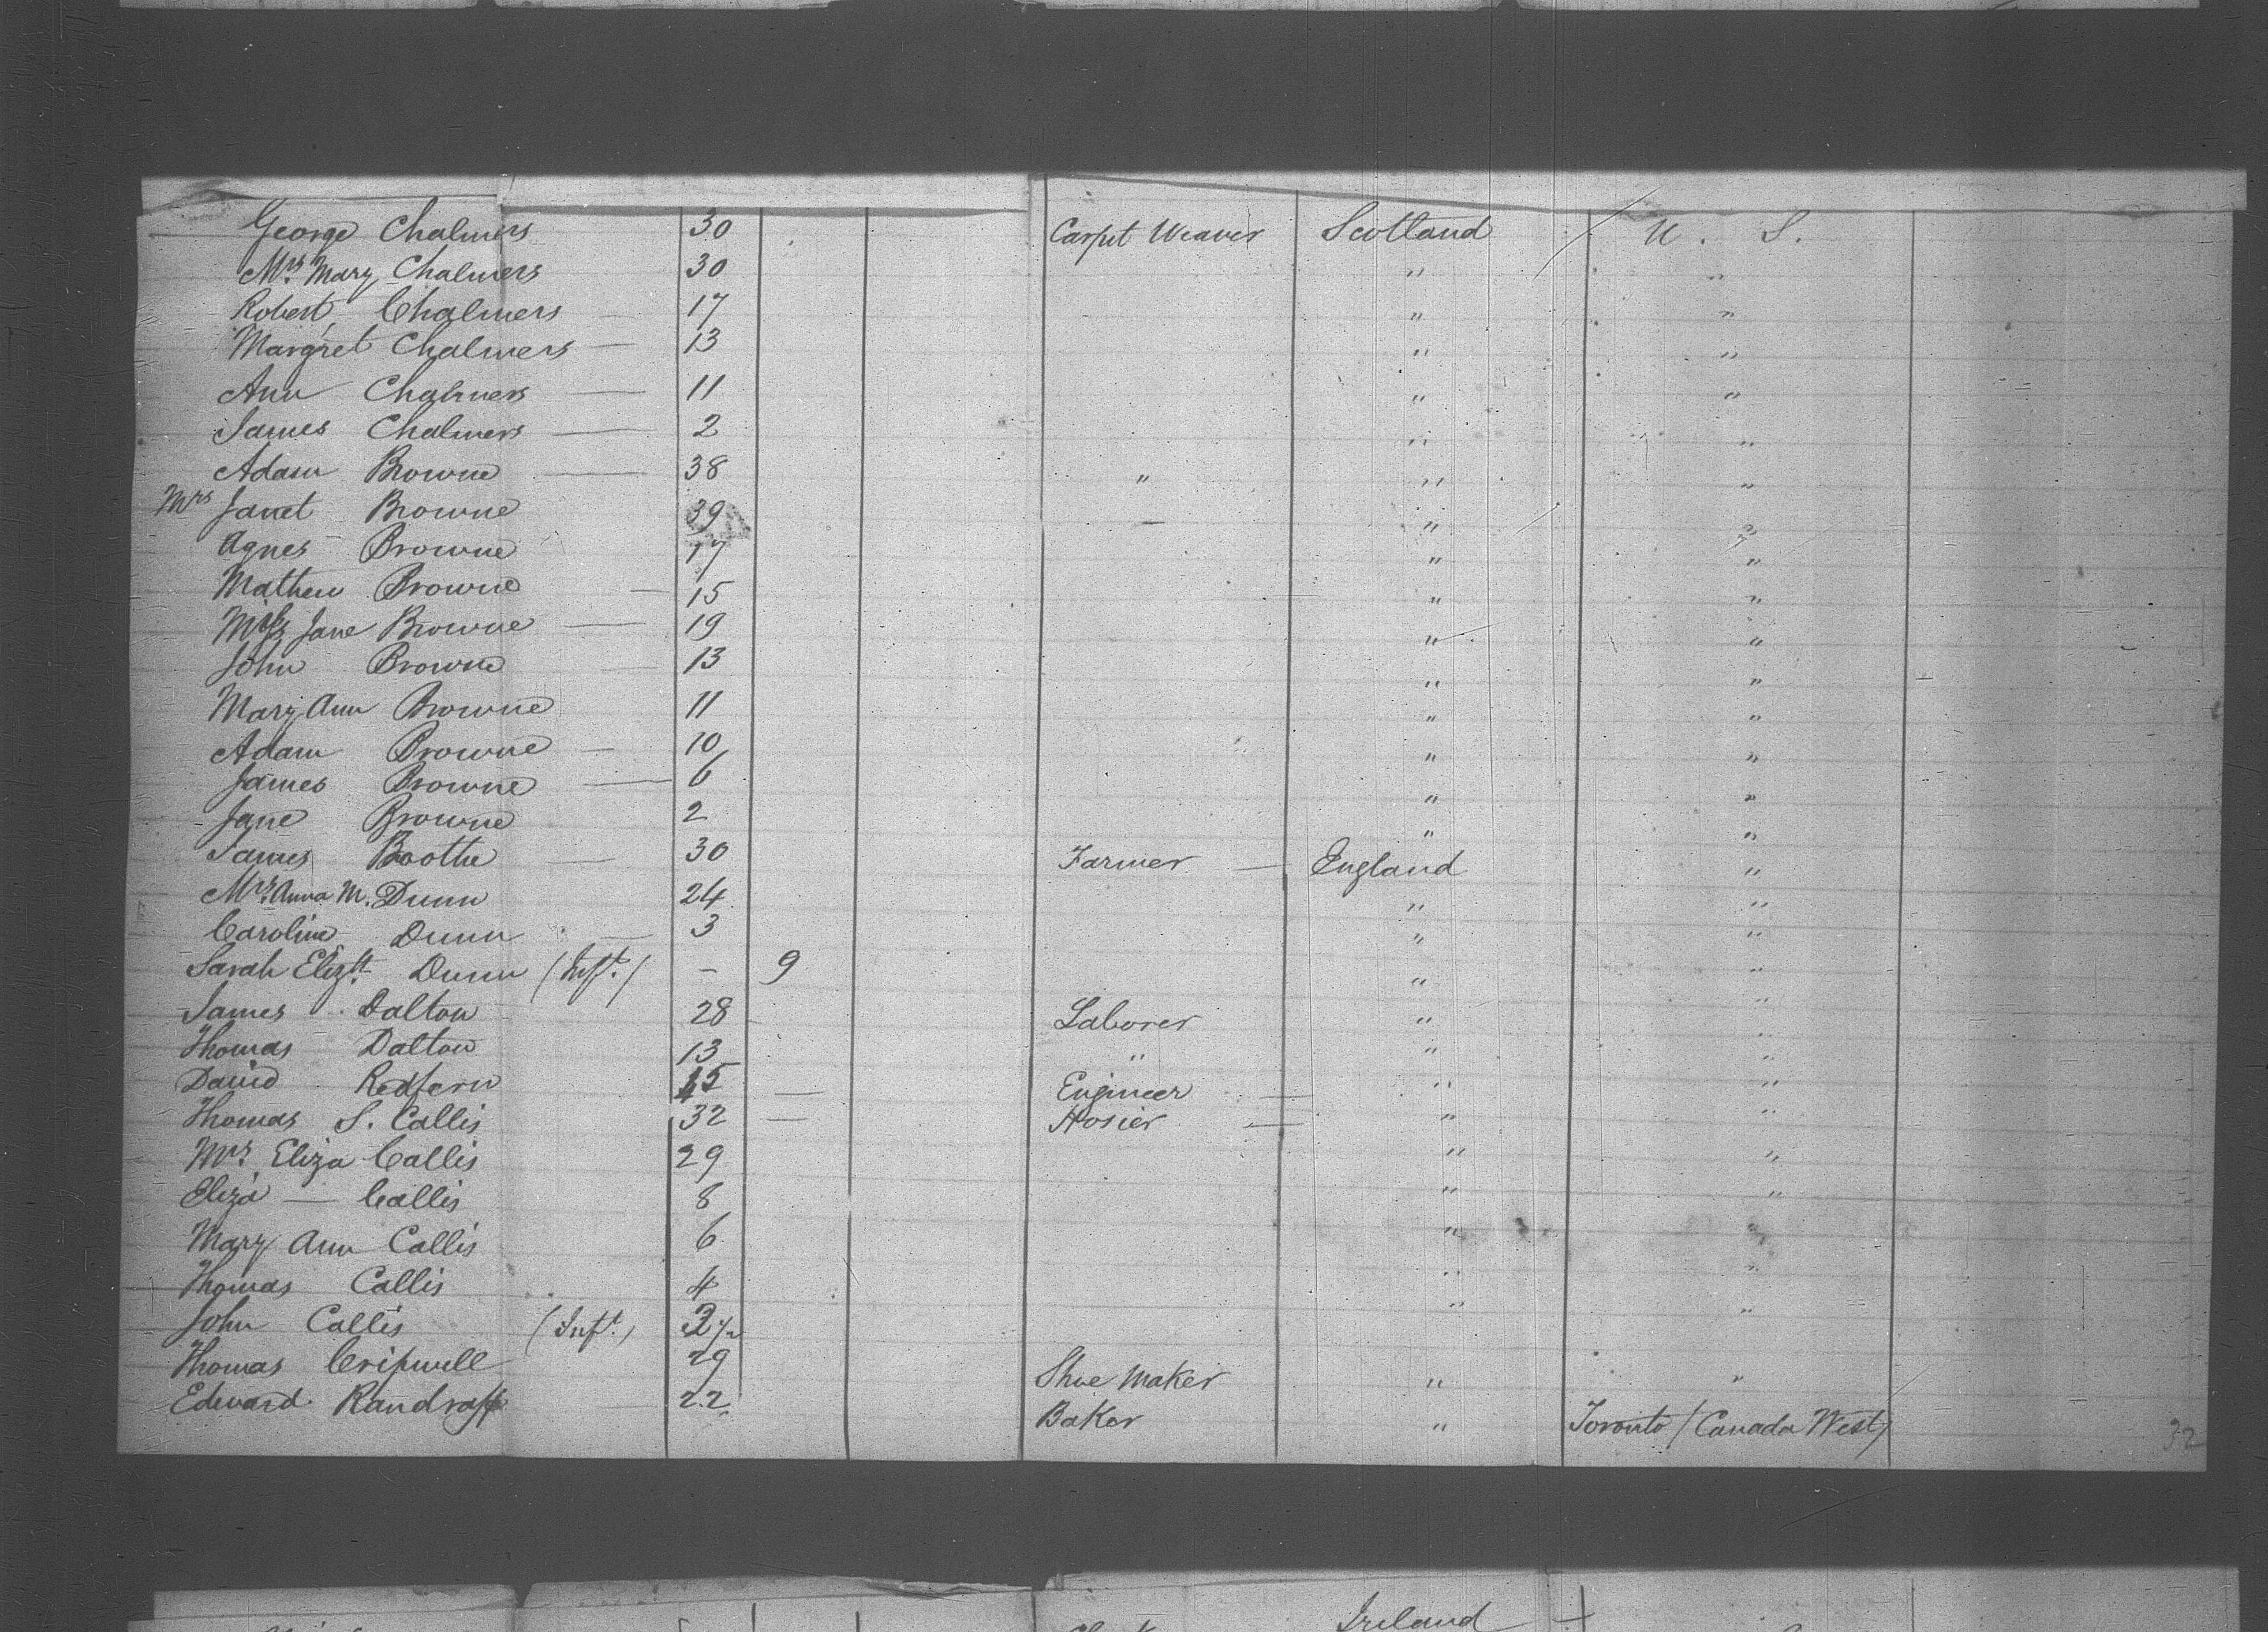 George Chalmers 30 Carpet Weaver Scotland U. S.
Mrs. Mary Chalmers 30 " "
Robert Chalmers — 17 " "
Margret Chalmers — 13 " "
Ann Chalmers — 11 " "
James Chalmers — 2 " "
Adam Browne — 38 " " "
Mrs Janet Browne 39 — " "
Agnes Browne 17 " "
Mathew Browne — 15 " "
Jane Browne — 19 " "
John Browne 13 " "
Mary Ann Browne 11 " "
Adam Browne — 10 " "
James Browne — 6 " "
Jane Browne 2 " "
James Boothe — 30 Farmer — England "
Mrs. Anna M. Dunn 24 " "
Caroline Dunn — 3 " "
Sarah Elizth. Dunn (Inft.) - 9 " "
James Dalton 28 Laborer " "
Thomas Dalton 13 " " "
David Redfern — Engineer — " "
Thomas S. Callis 32 — Hosier — " "
Mrs. Eliza Callis 29 " "
Eliza — Callis 8 " "
Mary Ann Callis 6 " "
Thomas Callis 4 " "
John Callis (Inft.) " "
Thomas Cripwell 29 Shoe Maker " "
Edward 22 Baker " Toronto (Canada West)
32
Ireland